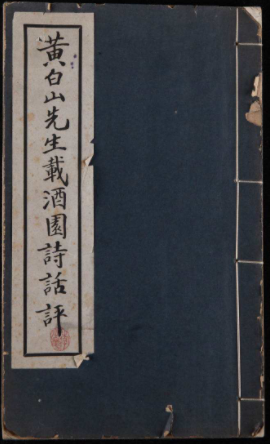 黄白山先生載酒園詩話評